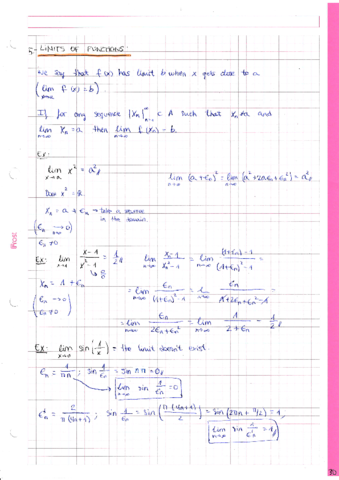 5- LIMITS OF FUNCTIONS:
We say that f(x) has limit b when x gets close to a
(lim x→a f(x) = b).
If for any sequence {Xn}∞n=1 ⊂ A such that Xn ≠ a and
lim n→∞ Xn = a then lim n→∞ f(Xn) = b.
Ex:
lim x→a x² = a²
lim n→∞ (a + εn)² = lim n→∞ (a² + 2aεn + εn²) = a²
Xn = a + εn → Take a sequence in the domain
(εn → 0 n→∞
εn ≠ 0
Ex: lim x→1 x-1/x²-1 = 1/2
0/0
lim n→∞ Xn-1/Xn²-1 = lim n→∞ (1+εn)-1/(1+εn)²-1 =
Xn = 1 + εn
(εn → 0
εn ≠ 0
= lim n→∞ εn/(1+εn)²-1 = lim n→∞ εn/1+2εn+εn²-1 =
= lim n→∞ εn/2εn+εn² = lim n→∞ 1/2+εn = 1/2
Ex: lim x→0 sin(1/x) = The limit doesn't exist.
εn = 1/πn ; sin 1/εn = sin nπ = 0
lim n→∞ sin 1/εn = 0
ε'n = 2/π(4n+1) ; sin 1/εn = sin(π(4n+1)/2) = sin(2πn + π/2) = 1
lim n→∞ sin 1/εn = 1